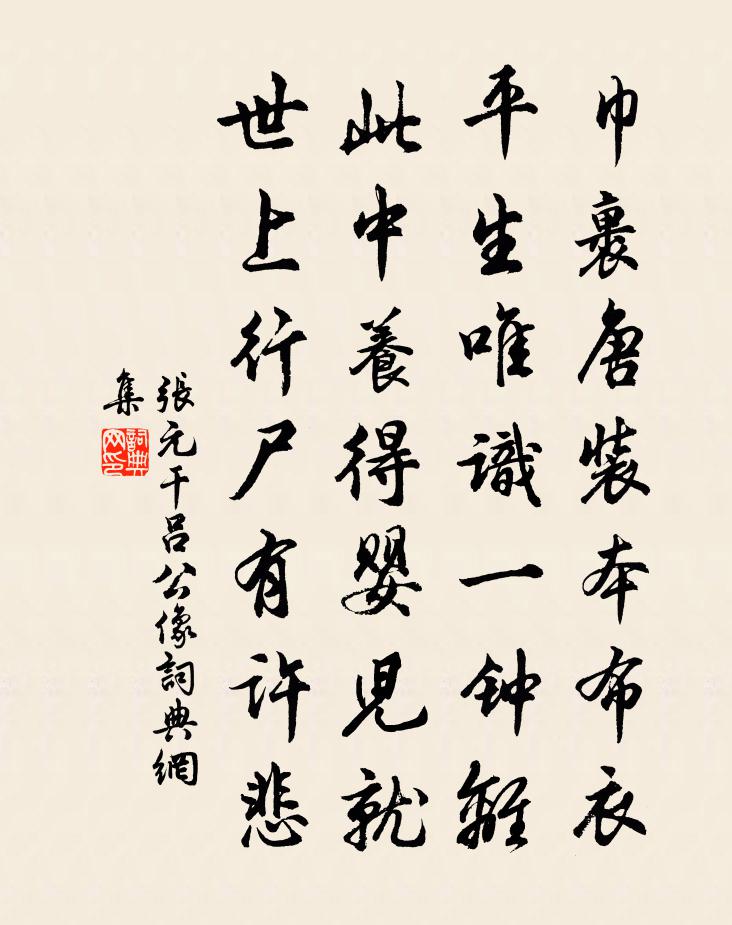 巾裹唐裝本布衣
平生唯識一钟離
此中養得嬰児就
世上行尸有許悲
張元干吕公像詞典網
集
詞典網印